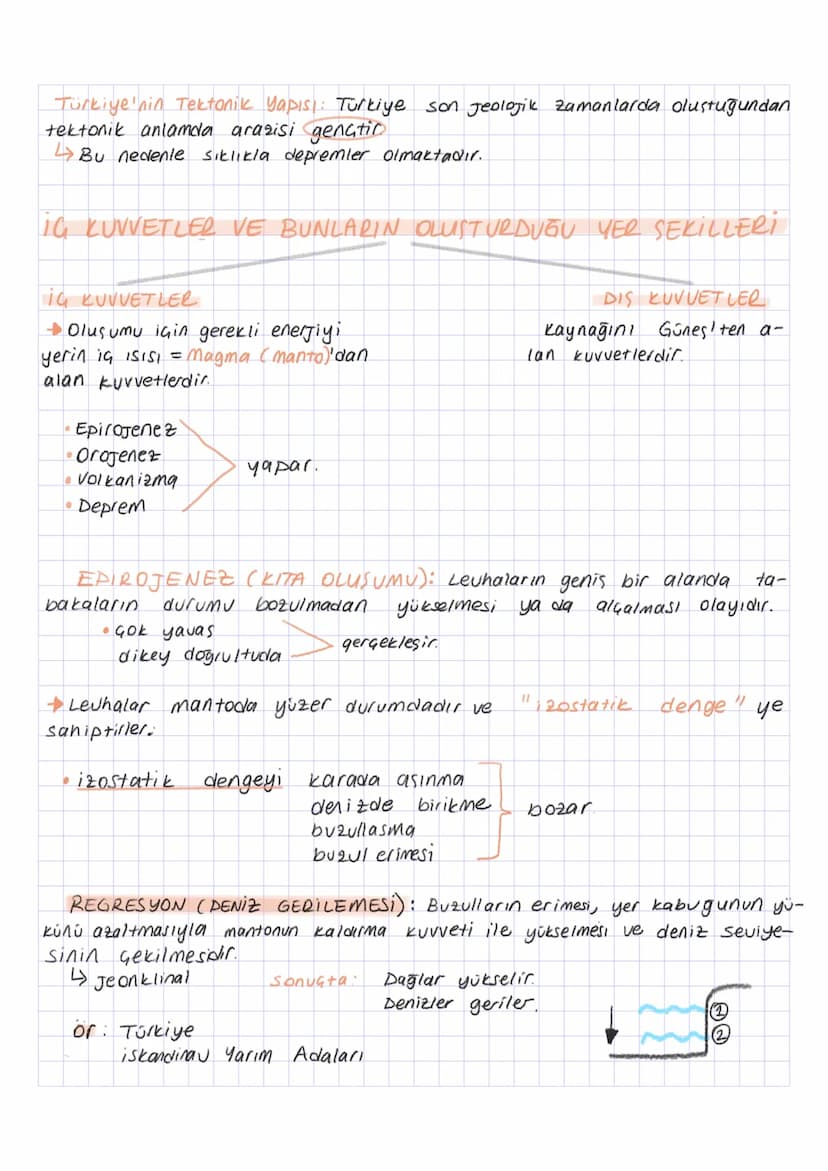 Türkiye'nin Tektonik Yapısı: Türkiye son jeolojik zamanlarda oluştuğundan
tektonik anlamda arazisi gençtir
↳ Bu nedenle sıklıkla depremler olmaktadır.
İÇ KUVVETLER VE BUNLARIN OLUŞTURDUĞU YER ŞEKİLLERİ
İÇ KUVVETLER
→ Oluşumu için gerekli enerjiyi
yerin iç ısısı = Magma (manto)'dan
alan kuvvetlerdir.
DIŞ KUVVETLER
Kaynağını Güneş'ten a-
lan kuvvetlerdir.
• Epirojenez
• Orojenez
• Volkanizma
• Deprem
yapar.
EPİROJENEZ (KITA OLUŞUMU): Levhaların geniş bir alanda ta-
bakaların durumu bozulmadan yükselmesi ya da alçalması olayıdır.
• Çok yavaş
dikey doğrultuda
gerçekleşir.
→ Levhalar mantoda yüzer durumdadır ve "izostatik denge" ye
sahiptirler.
• izostatik dengeyi karada aşınma
denizde birikme
buzullaşma
buzul erimesi
bozar.
REGRESYON (DENİZ GERİLEMESİ): Buzulların erimesi, yer kabugunun yü-
künü azaltmasıyla mantonun kaldırma kuvveti ile yükselmesi ve deniz seviye-
sinin çekilmesidir.
↳ Jeonklinal
Sonuçta: Dağlar yükselir.
Denizler geriler.
Ör: Türkiye
iskandinav Yarım Adaları
1
2